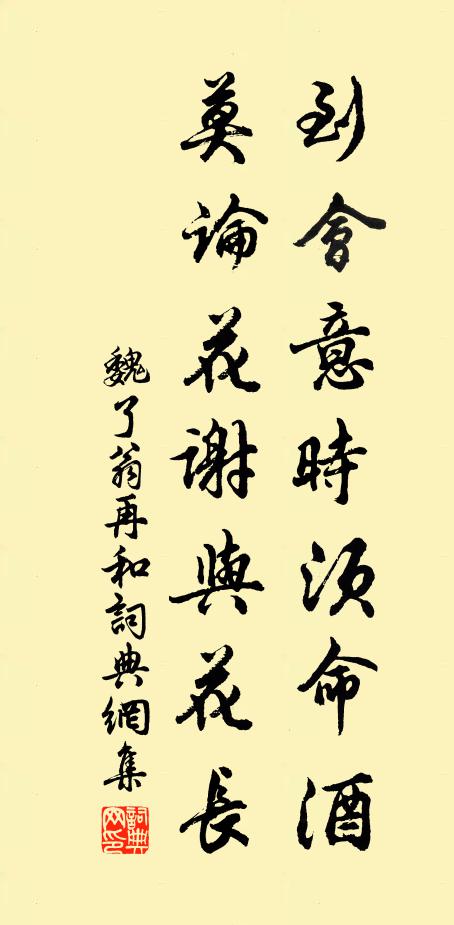 到會意時須命酒
莫論花謝與花長
魏了翁再和詞典網集
詞典网印